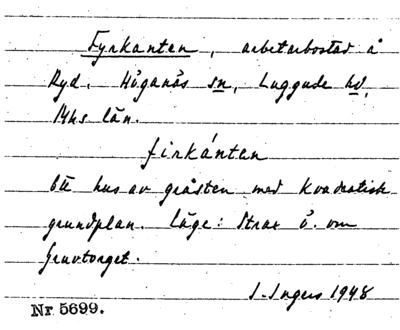 Fyrkanten, arbetarbostad å
Ryd. Höganäs sn, Luggude hd,
Mhs län.
firkánten
Ett hus av gråsten med kvadratisk
grundplan. Läge: Strax ö. om
Gruvtorget.
I. Ingers 1948
Nr. 5699.